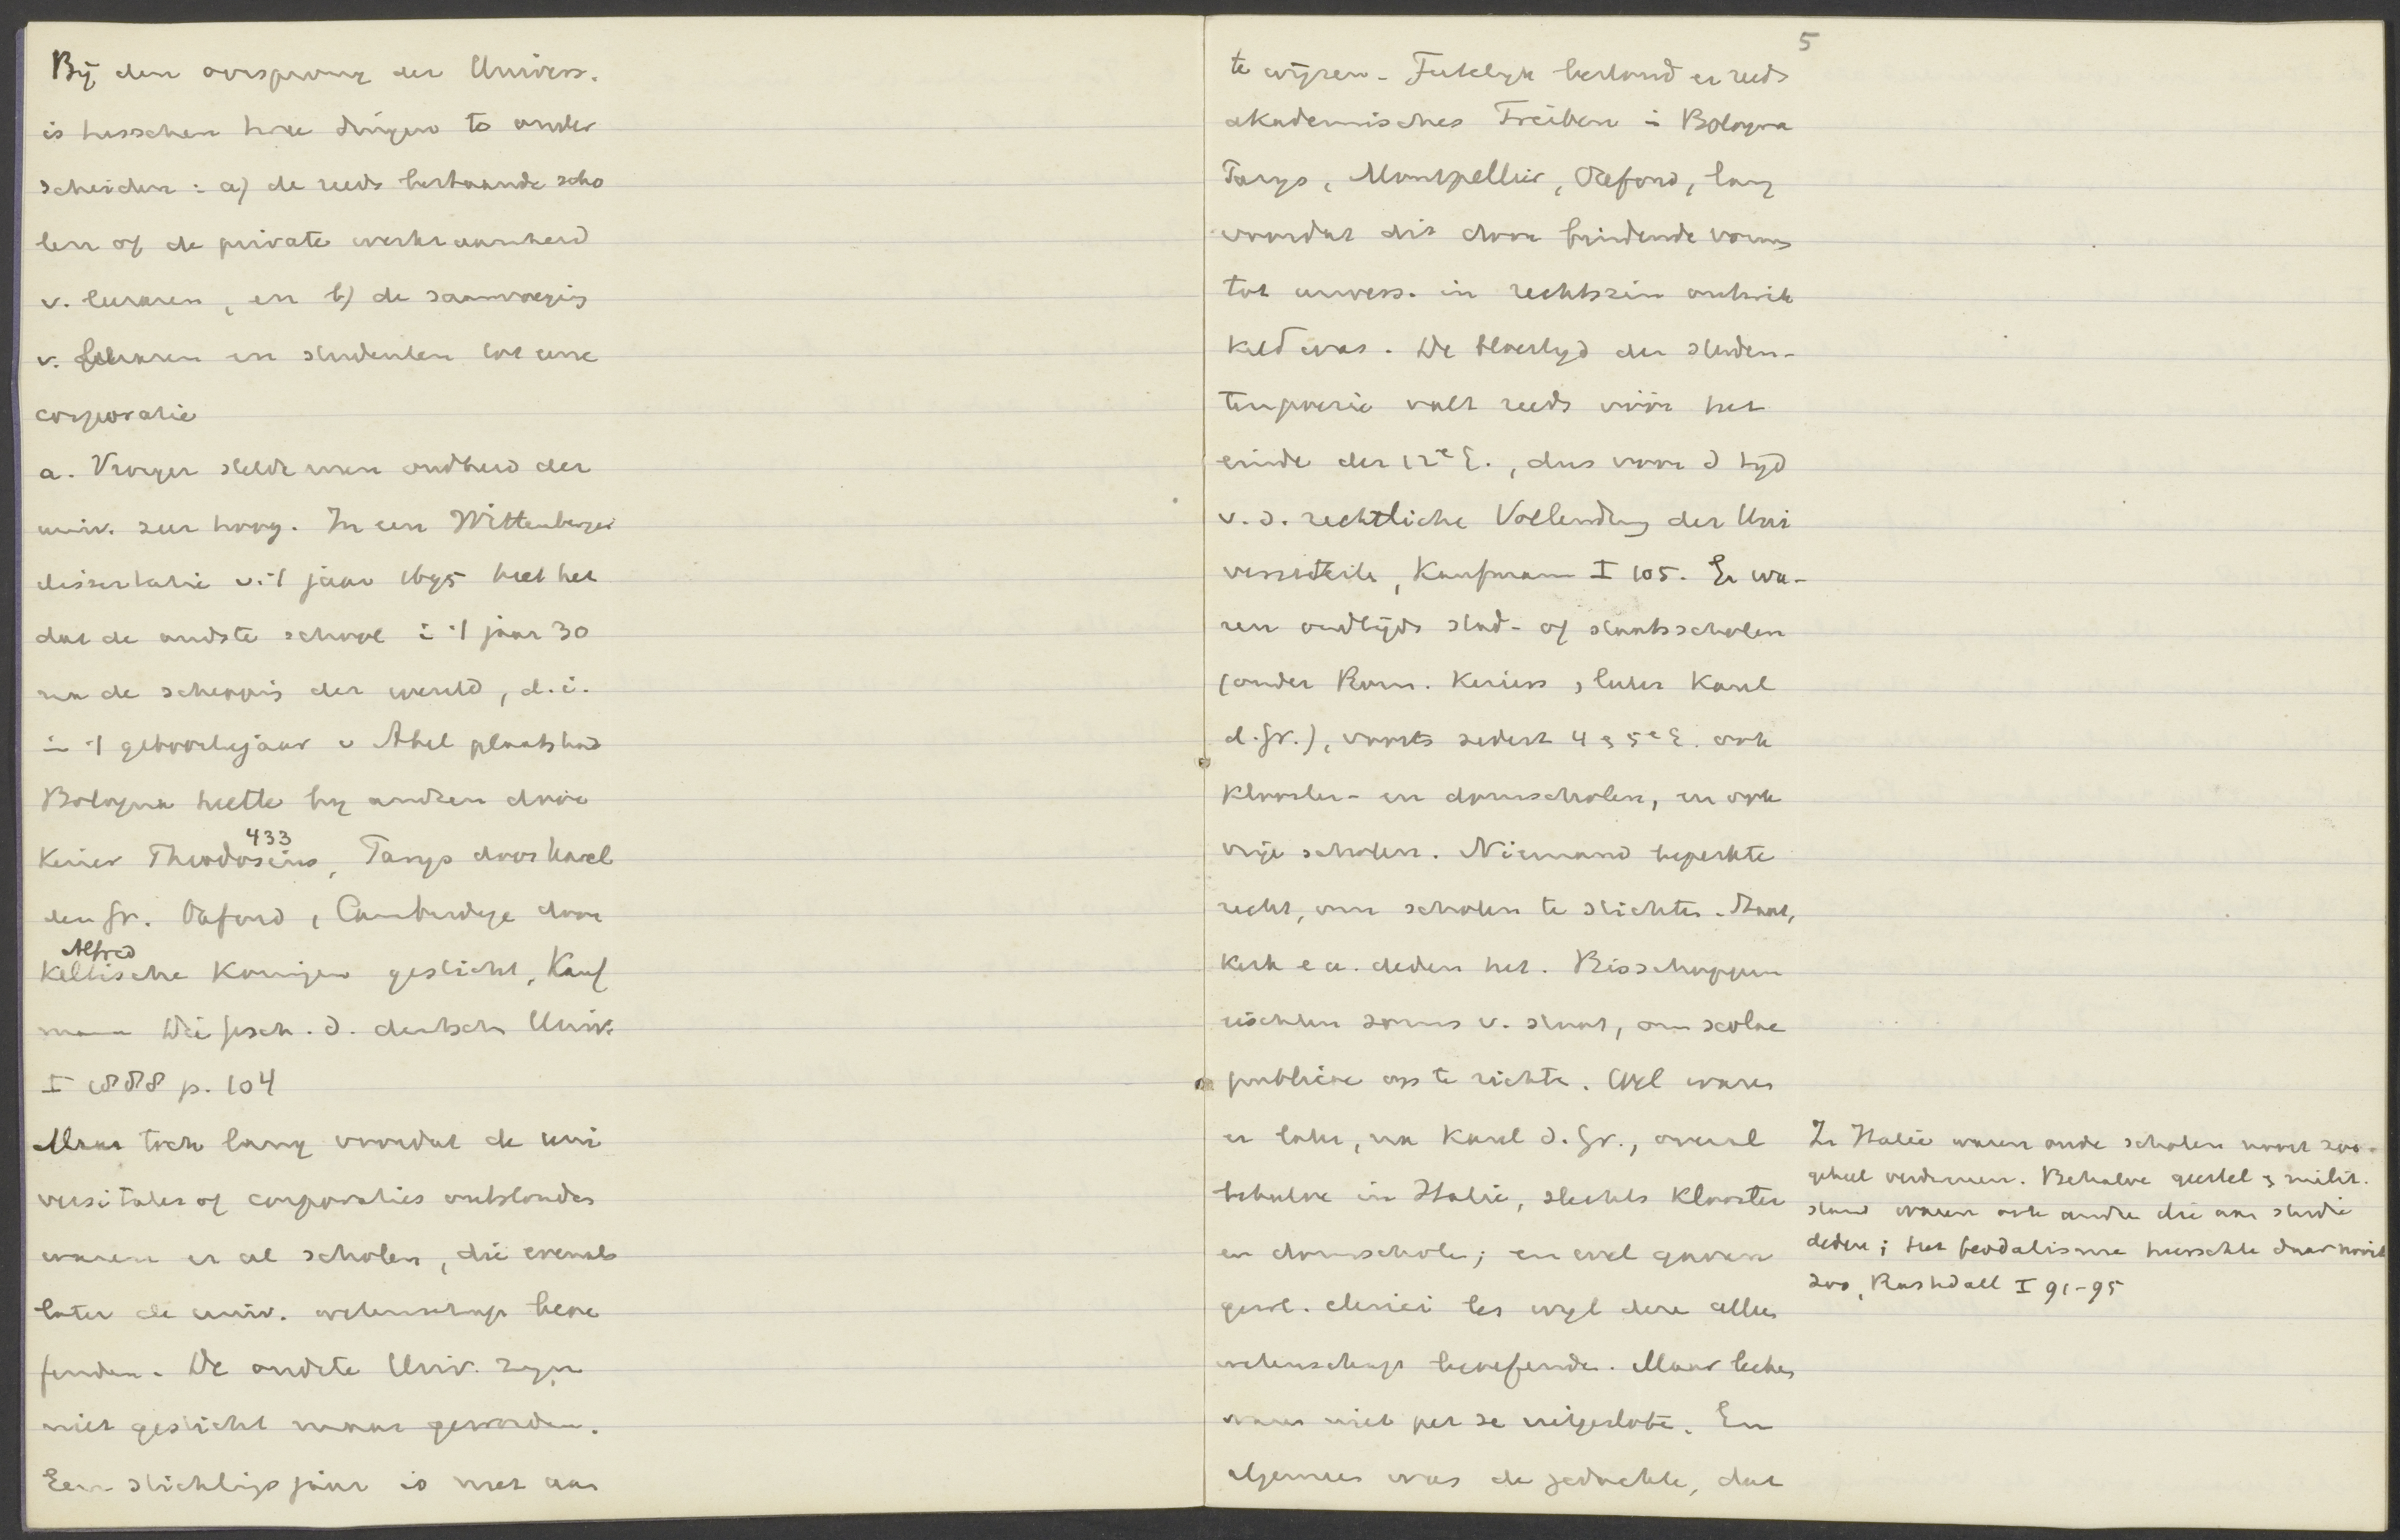 Bij den oorsprong der Univers.
is tusschen twee dingen te onder
scheiden: a) de reeds bestaande scho
len of de private werkzaamheid
v. leeraren, en b) de saamvoegig
v. leeraren en studenten tot eene
corporatie
a. Vroeger stelde men oudheid der
univ. zeer hoog. In een Wittenberger
dissertatie v. 't jaar 1695 heet het
dat de oudste school i 't jaar 30
na de scheppig der wereld, d.i.
in 't geboortejaar v Abel plaats had
Bologna heette by andren door
433
Keizer Theodosius, Parys door Karel
den Gr. Oxford, Cambridge door
Alfred
Keltische Koningen gesticht, Kauf
mann Die Gesch. d. deutsch Univ.
I 1888 p. 104
Maar toch lang voordat de uni
versitates of corporaties ontstonden
waren er al scholen, die evenals
later de univ. wetenschap beoe
fenden. De oudste Univ. zyn
niet gesticht maar geworden.
Een stichtigsjaar is niet aan
5
te wijzen. Feitelyk bestond er reeds
akademisches Treiben i Bologna
Parys, Montpellier, Oxford, lang
voordat dit door bindende vorms
tot univers. in rechtszin ontwik
keld was. De bloeityd der studen-
tenpoezie valt reeds vóór het
einde der 12e E., dus voor d tyd
v. d. rechtliche Vollendung der Uni
versität, Kaufmann I 105. Er wa-
ren oudtijds stad- of staatsscholen
(onder Rom. Keizers, later Karel
d. Gr.), voorts sedert 4 & 5e E. ook
klooster- en domscholen, en ook
vrije scholen. Niemand beperkte
recht, om scholen te stichten. Staat,
kerk e a. deden het. Bisschoppen
eischten soms v. staat, om scolae
publicae op te richte. Wel waren
er later, na Karel d. Gr., overal
behalve in Italie, slechts klooster
en domscholen; en wel gaven
gewl. clerici les wyl deze alleen
wetenschap beoefende. Maar leeken
waren niet per se uitgeslote. En
algemeen was de gedachte, dat
In Italie waren oude scholen nooit zoo-
geheel verdwenen. Behalve geestel & milit.
stand waren ook andre die aan studie
deden; het feodalisme heerschte daar nooit
zoo, Rashdall I 91-95